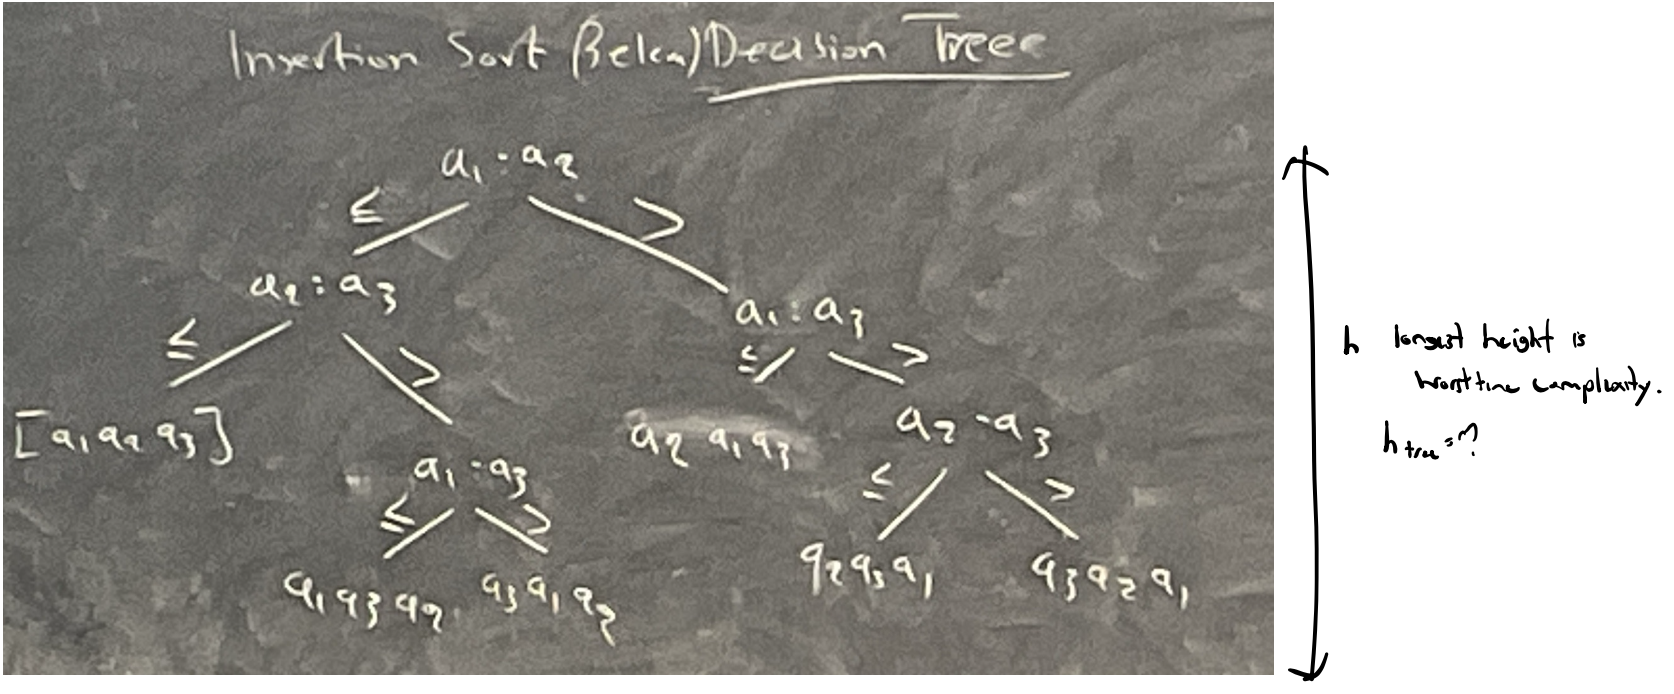 Insertion Sort (Below) Decision Tree
a₁ : a₂
≤ >
a₂ : a₃
a₁ : a₃
≤ >
≤ >
[a₁ a₂ a₃]
a₁ : a₃
a₂ a₁ a₃
a₂ : a₃
≤ >
≤ >
a₁ a₃ a₂
a₃ a₁ a₂
a₂ a₃ a₁
a₃ a₂ a₁
h longest height is
worst time complexity.
h tree = ?